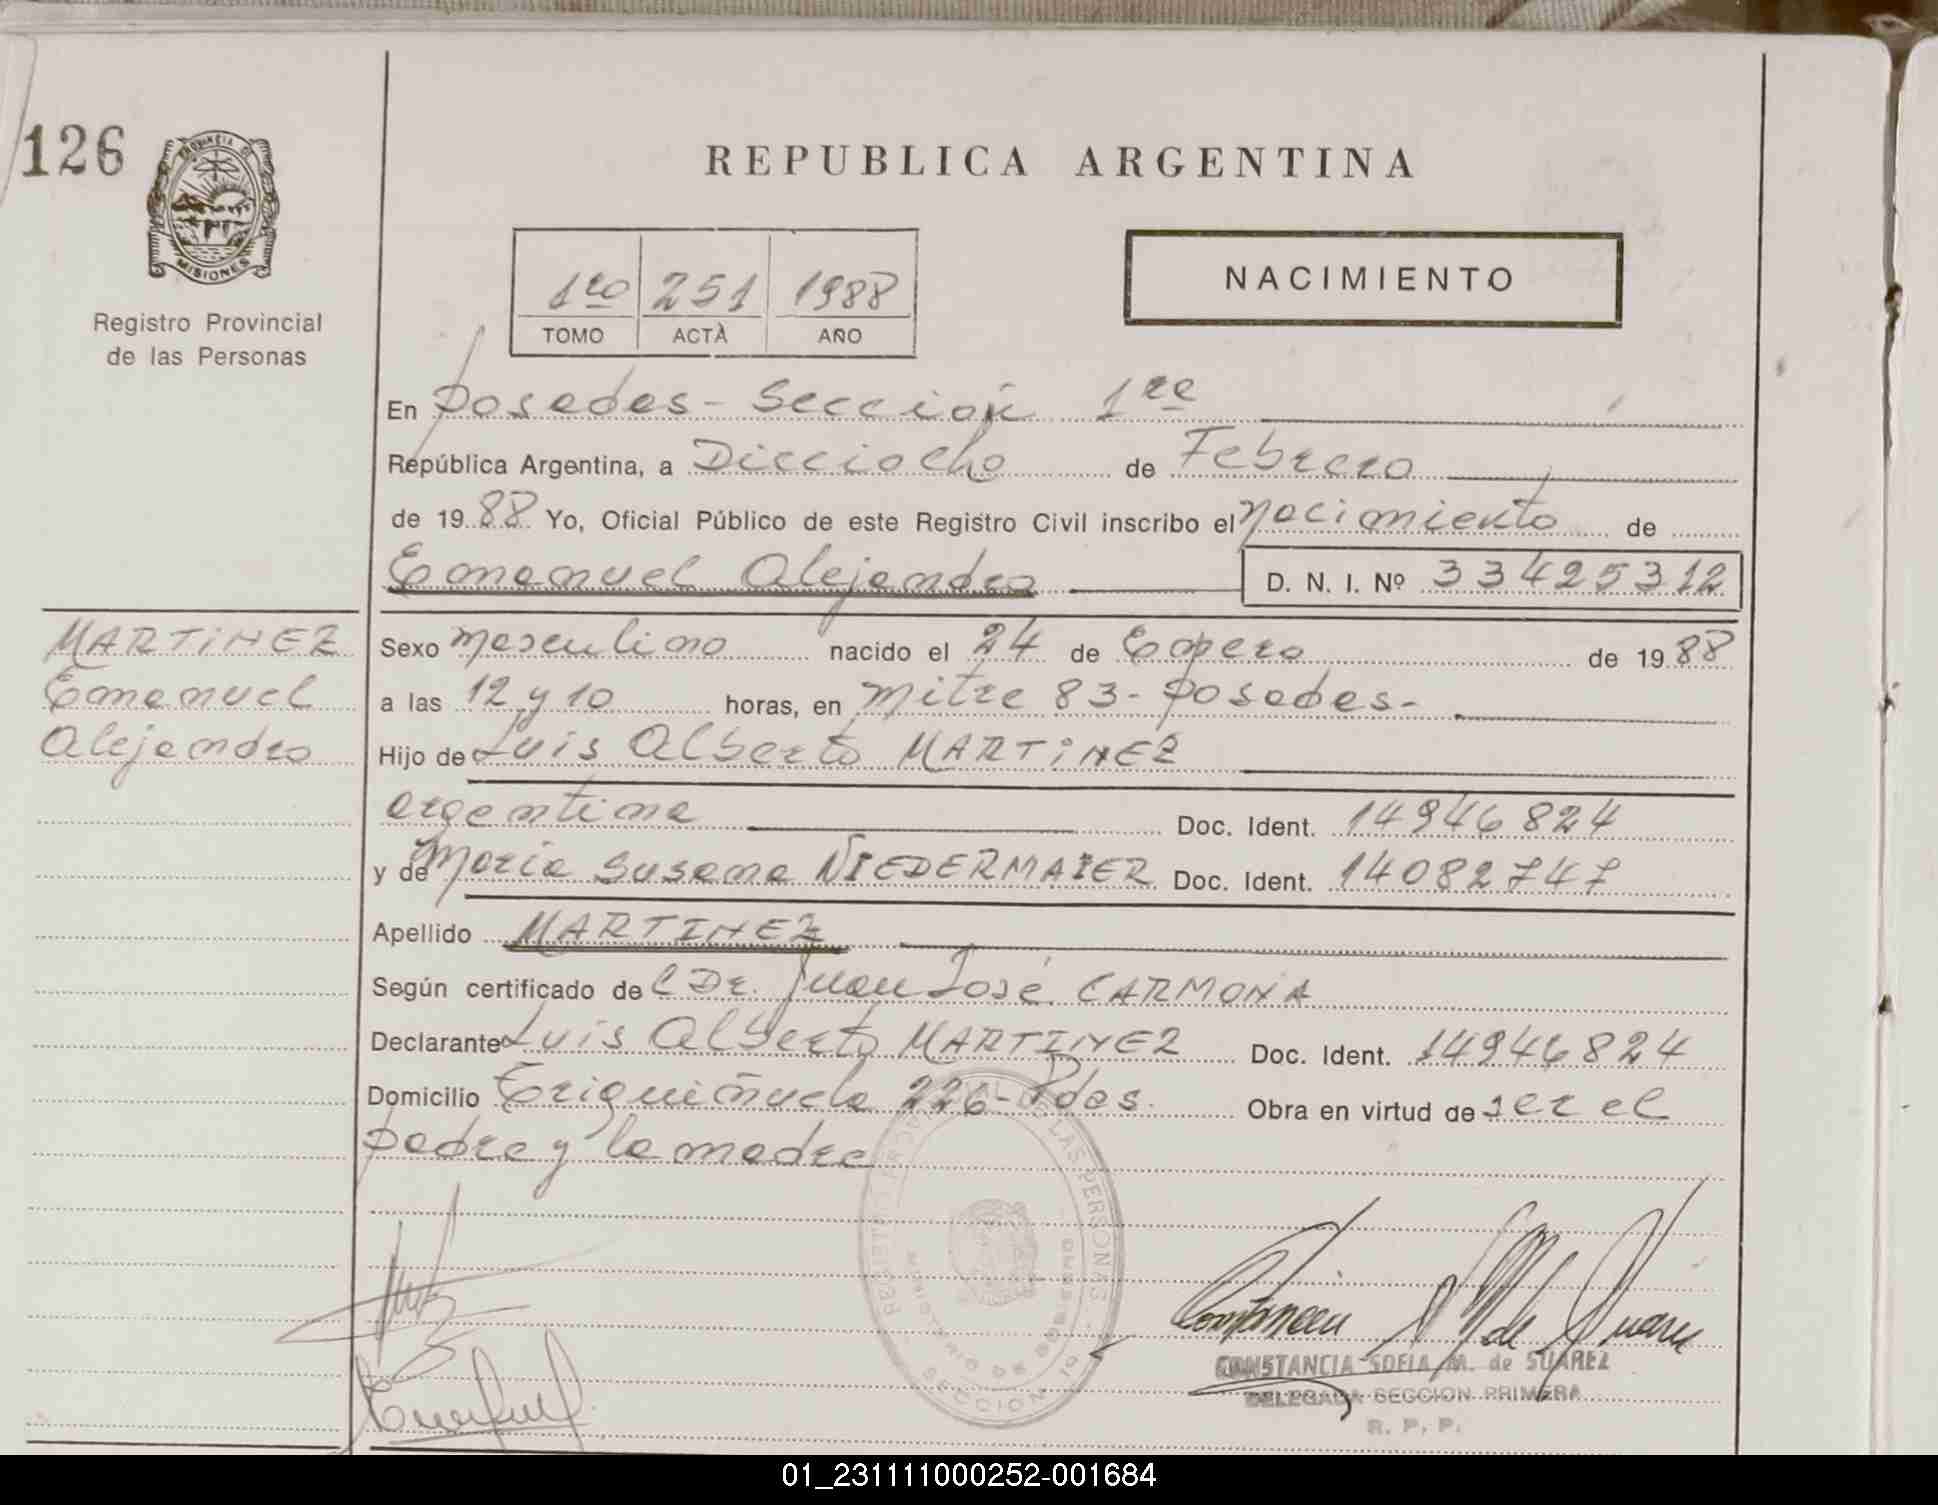 126
PROVINCIA DE
MISIONES
Registro Provincial
de las Personas
REPUBLICA ARGENTINA
1ro 251 1988
TOMO ACTA AÑO
NACIMIENTO
En Posadas - Sección 1ra
República Argentina, a Dieciocho de Febrero
de 1988 Yo, Oficial Público de este Registro Civil inscribo el nacimiento de
Emanuel Alejandro D. N. I. Nº 33425312
MARTINEZ
Emanuel
Alejandro
Sexo masculino nacido el 24 de Enero de 1988
a las 12 y 10 horas, en Mitre 83 - Posadas -
Hijo de Luis Alberto MARTINEZ
argentina Doc. Ident. 14946824
y de Maria Susana NIEDERMAIER Doc. Ident. 14082747
Apellido MARTINEZ
Según certificado de C Dr. Juan José CARMONA
Declarante Luis Alberto MARTINEZ Doc. Ident. 14946824
Domicilio 226 - Pdas. Obra en virtud de ser el
padre y la madre
REGISTRO PROVINCIAL DE LAS PERSONAS
MINISTERIO DE GOBIERNO
SECCION 1a
CONSTANCIA SOFIA M. de SUAREZ
DELEGADA SECCION PRIMERA
R. P. P.
01_231111000252-001684